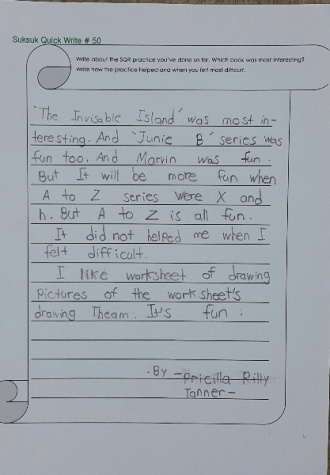 Suksuk Quick Write # 50
Write about the SQR practice you've done so far. Which book was most interesting?
Write how the practice helped and when you felt most difficult.
'The Invisable Island' was most in-
teresting. And 'Junie B' series was
fun too. And Marvin was fun.
But It will be more fun when
A to Z series were X and
h. But A to Z is all fun.
It did not helped me when I
felt difficult.
I like worksheet of drawing
Pictures of the work sheet's
drawing Theam. It's fun :
- By - Pricilla Rilly
Tanner -